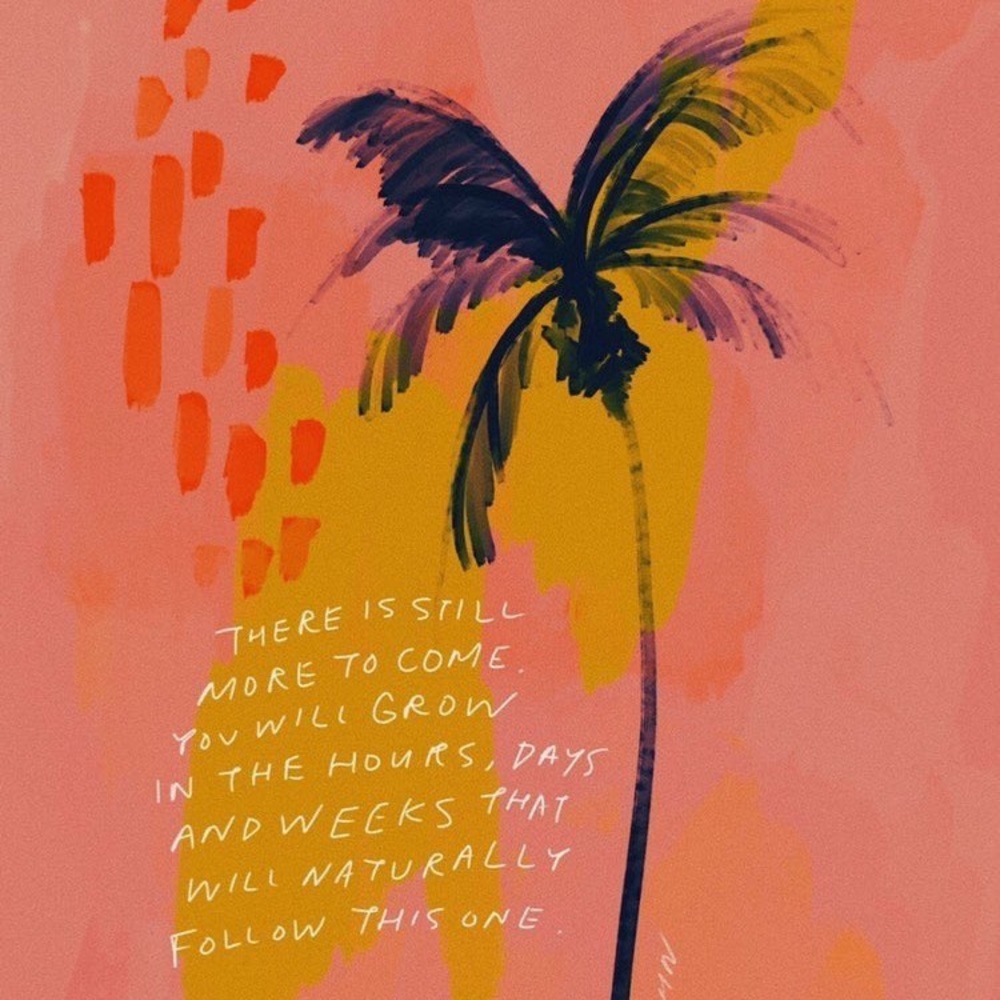 THERE IS STILL
MORE TO COME.
YOU WILL GROW
IN THE HOURS, DAYS
AND WEEKS THAT
WILL NATURALLY
FOLLOW THIS ONE.
MHN